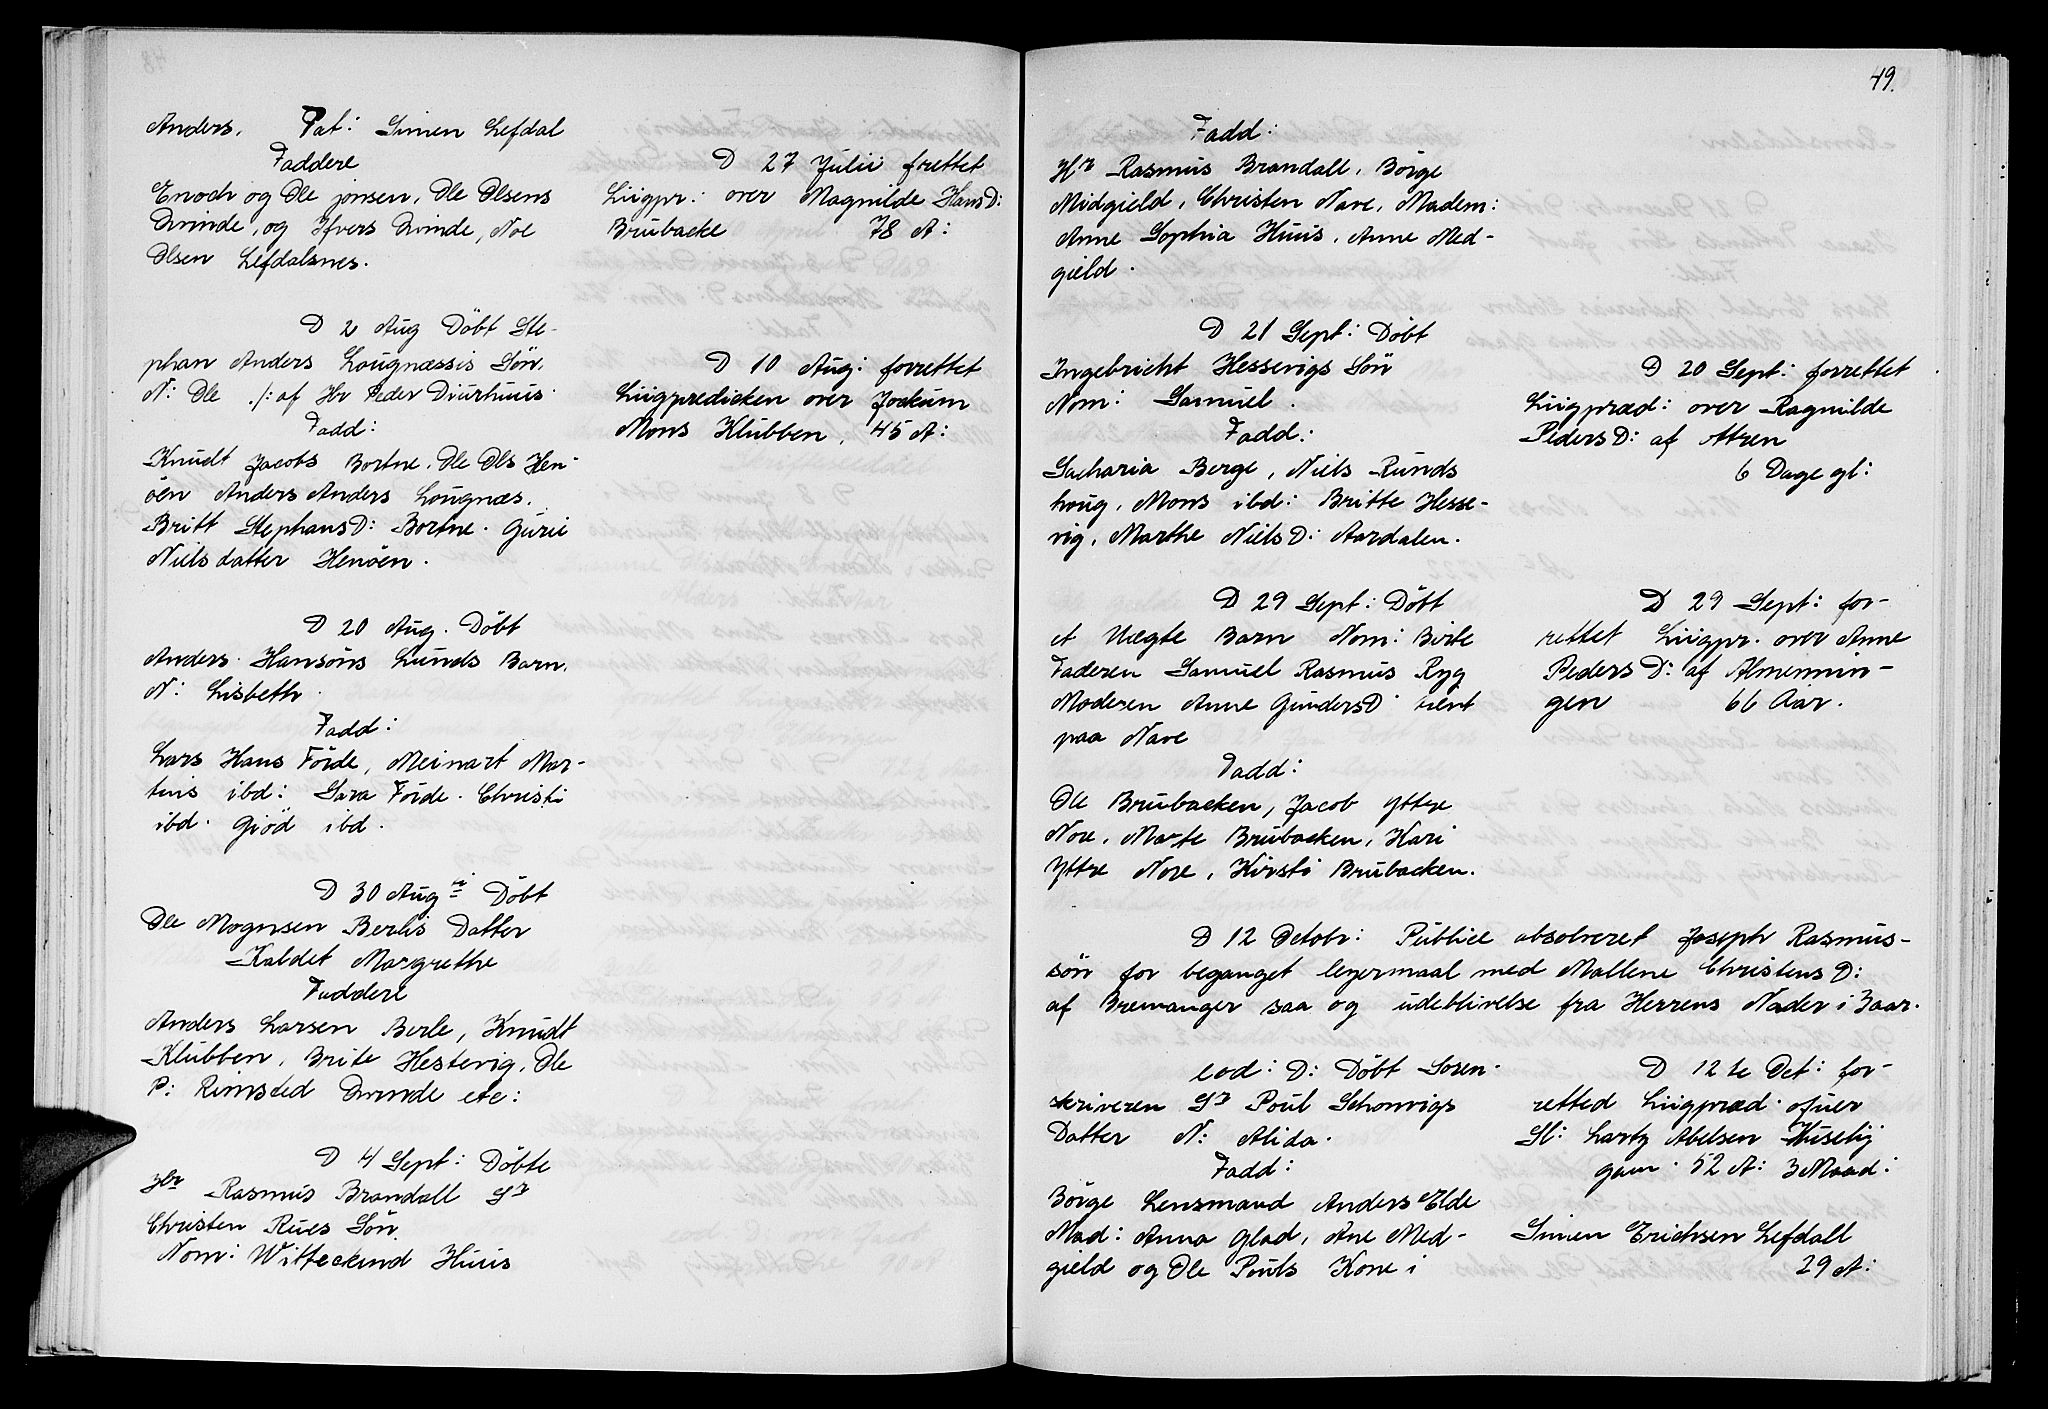 Anders. Pat: Simen Lefdal
Faddere
Enoch og Ole jonsen, Ole Olsens
Qvinde, og Ifvers Qvinde, Noe
Olsen Lefdalsnes.
D 2 Aug Döbt Ste-
phan Anders Lougnæssis Sön.
N: Ole ./: af Hr Peder Diurhuus
Fadd:
Knudt Jacobs Bortne. Ole Ols Hen-
öen Anders Anders Lougnæs.
Britt StephansD: Bortne. Gurie
Nielsdatter Henöen.
D 20 Aug. Döbt
Anders Hansöns Lunds Barn.
N: Lisbeth.
Fadd:
Lars Hans Förde, Meinart Mar-
tins ibd: Sara Förde. Christi
ibd. Giöd ibd.
D 30 Augi Döbt
Ole Mognsen Berlis Datter
Kaldet Margrethe
Faddere
Anders Larsen Berle, Knudt
Klubben, Brite Hestevig, Ole
P: Rimsted Qvinde etc:
D 4 Sept: Döbte
Hr Rasmus Brandall Sr
Christen Rues Sön.
Nom: Witteckind Huus
D 27 Julii frettet
Liigpr: over Magnilde HansD:
Brubacke 78 A:
D 10 Aug: forrettet
Liigpredicken over Jockum
Mons Klubben, 45 A:
49.
Fadd:
Hr Rasmus Brandall, Börge
Midgield, Christen Nave, Madem:
Anne Sophia Huus, Anne Med-
gield.
D 21 Sept: Döbt
Ingebricht Hessevigs Sön
Nom: Samuel.
Fadd:
Sacharia Berge, Niels Runds
houg, Mons ibd: Britte Hesse-
vig, Marthe NielsD: Aardalen.
D 20 Sept: forrettet
Liigpræd: over Ragnilde
PedersD: af Attren
6 Dage gl:
D 29 Sept: Döbt
et Uægte Barn Nom: Birte
Faderen Samuel Rasmus Ryg
Moderen Anne GundersD tient
paa Nave
Fadd:
Ole Brubacken, Jacob Yttre
Nore, Marte Brubacken, Kari
Yttre Nore, Kirsti Brubacken.
D 29 Sept: for-
rettet Liigpr. over Anne
PedersD: af Almennin-
gen 66 Aar.
D 12 Octobr: Publice absolveret Joseph Rasmus-
sön for beganget leyermaal med Mallene ChristensD:
af Bremanger saa og udeblivelse fra Herrens Nader i 3aar.
eod: D: Döbt Soren-
skriveren Sr Poul Schonvigs
Datter N: Alida.
Fadd:
Börge Lensmand Anders Elde
Mad: Anna Glad, Ane Med-
gield og Ole Pouls Kone i
D 12te Oct: for-
retted Liigpræd. ofuer
Sl: Lartz Abelsen Huselij
gam. 52 A: 3 Maad:
Simen Erichsen Lefdall
29 A: